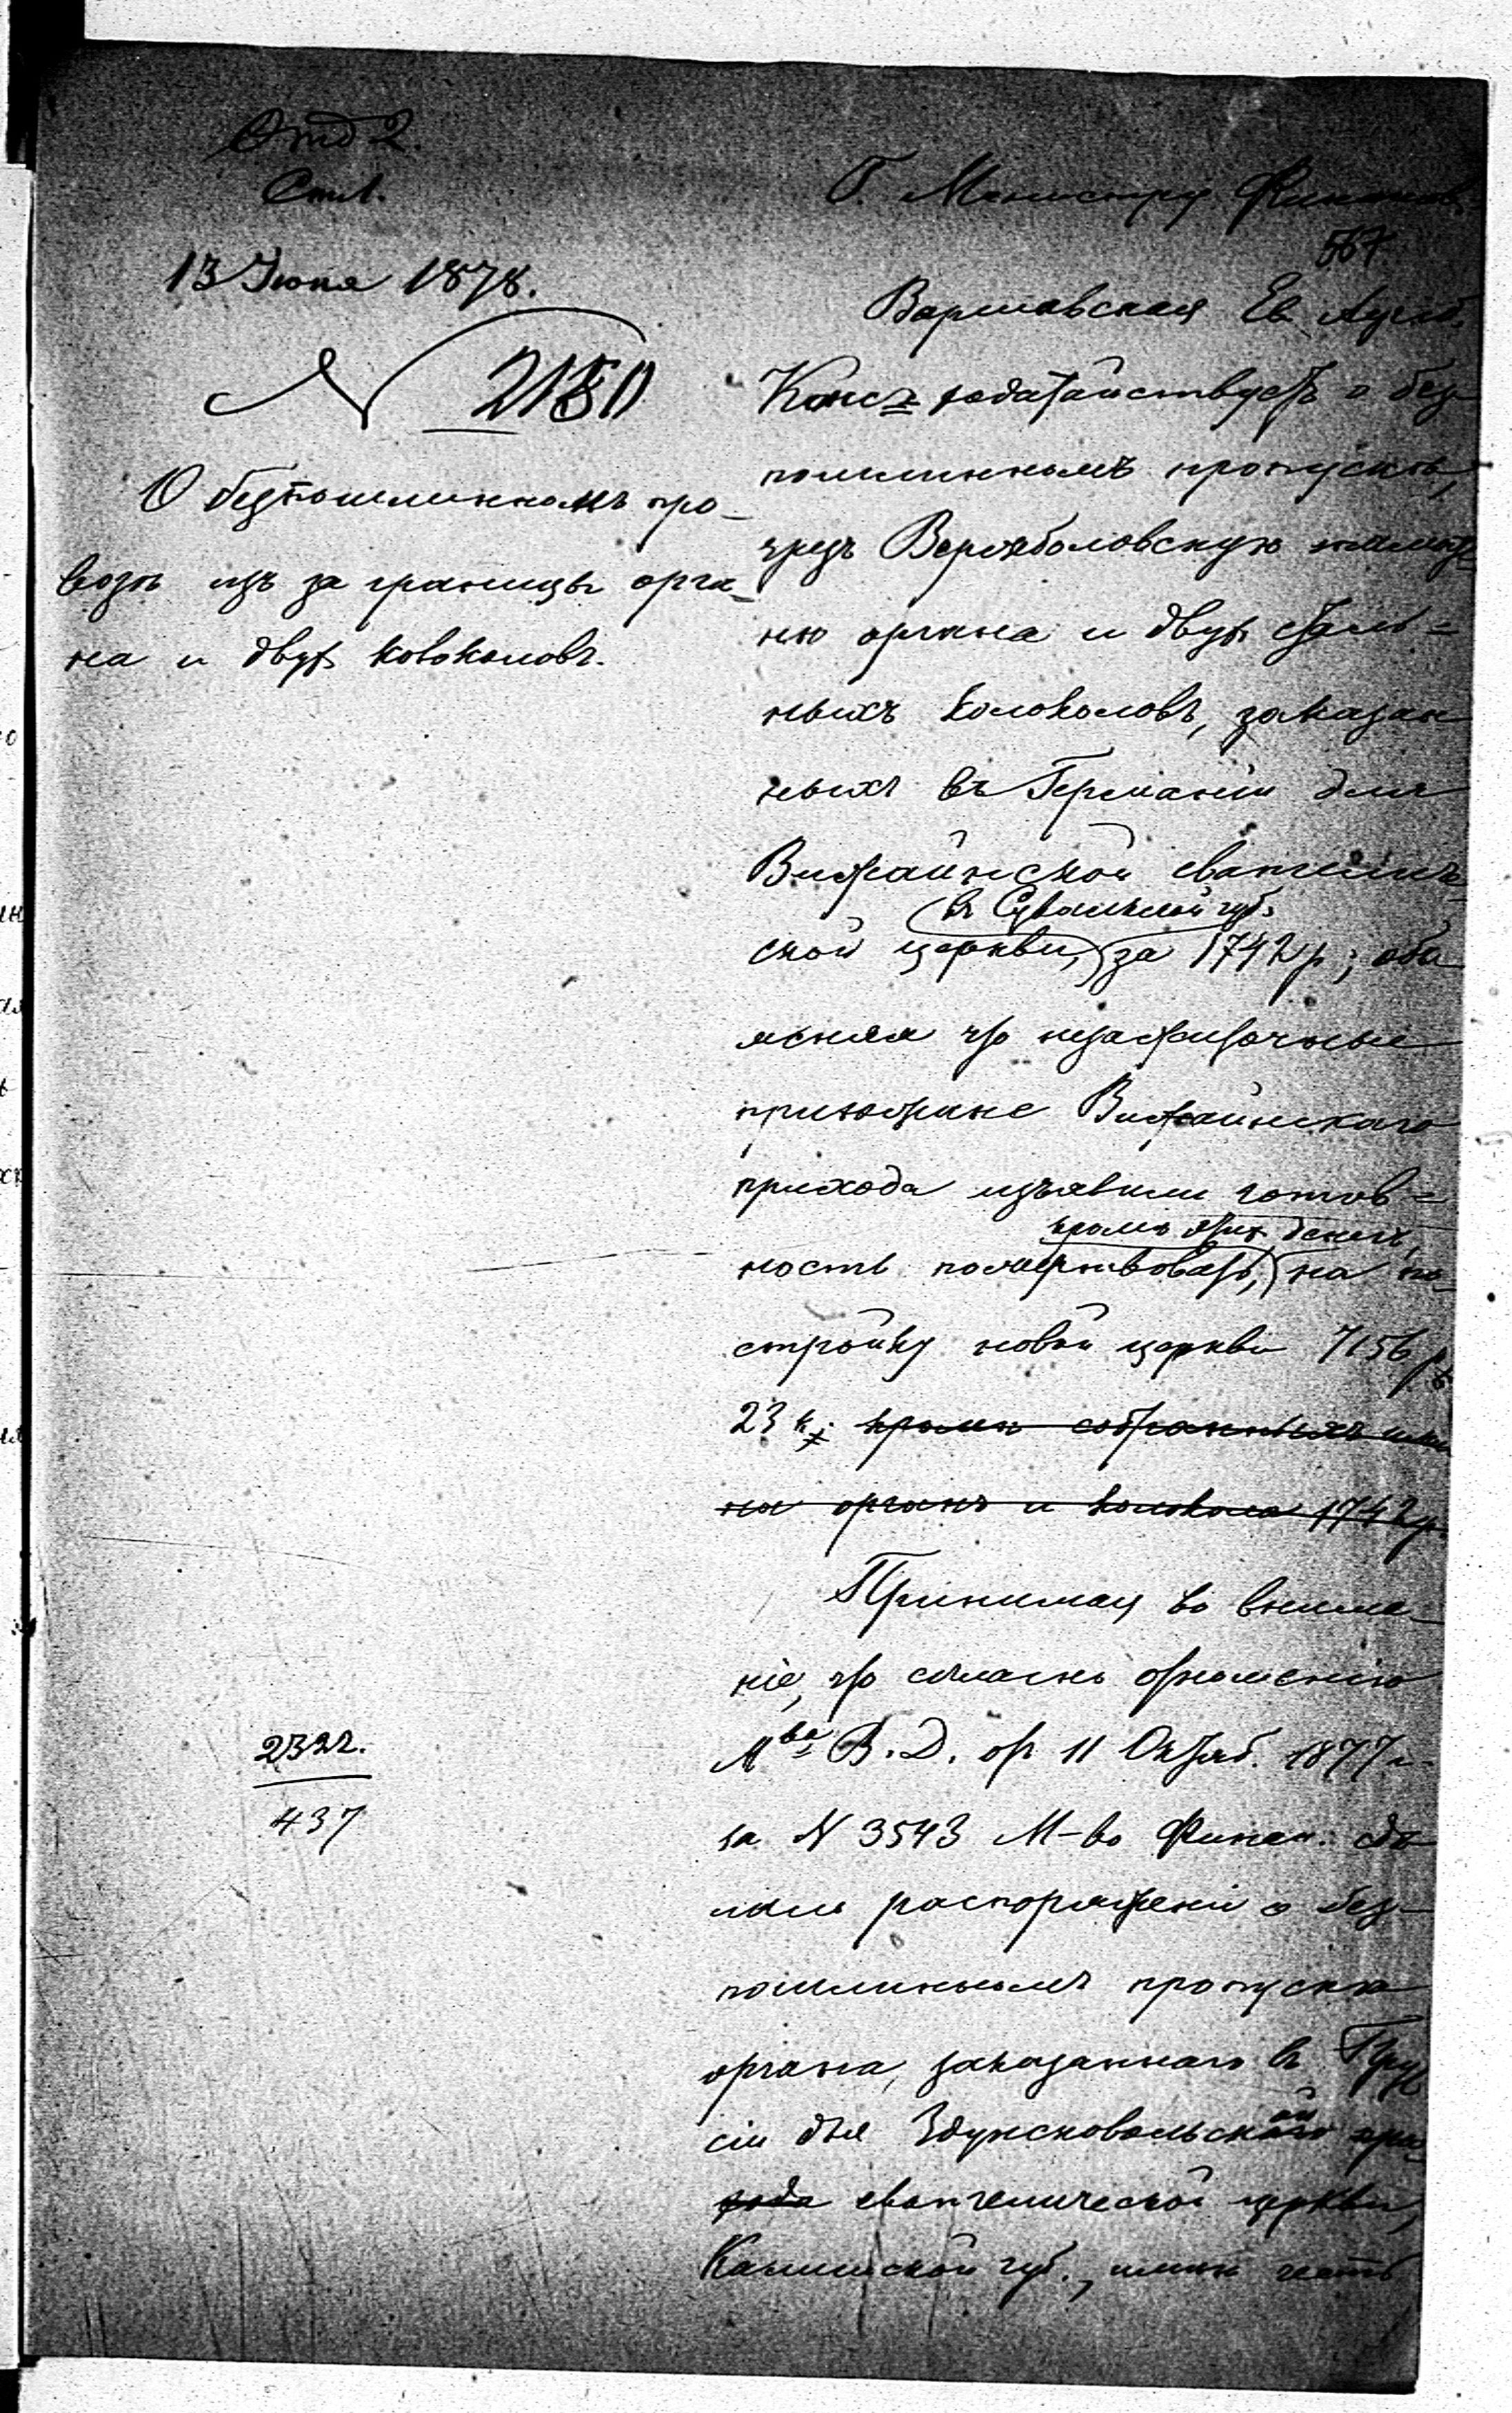 Отд 2.
Стл.
13 Июня 1878.
N 2180
О безпошлинномъ про-
возѣ изъ за границы орга-
на и двухъ колоколовъ.
2322.
437
Г. Министру Финансовъ
567
Варшавская Ев. Аугсб.
Конс. ходатайствуетъ о без-
пошлинномъ пропускѣ,
чрезъ Вержболовскую таможе-
ню органа и двухъ сталь=
ныхъ колоколовъ, заказан
ныхъ въ Германіи для
Вижайнской евангелич-
въ Сувалкской губ.
ской церкви, за 1742 р; объ
ясняя что незажиточные
прихожане Вижайнскаго
прихода изъявили готов=
кромѣ этихъ денегъ,
ность пожертвовать, на по-
стройку новой церкви 7156 р.
23 к. кромѣ собранныхъ ими
на органъ и колокола 1742 р.
Принимая во внима-
ніе, что согласно отношенію
М-ва В. Д. от 11 Октяб. 1877 г.
за N 3543 М-во Финан. сдѣ
лало распоряженіе о без-
пошлинномъ пропускѣ
органа, заказаннаго въ Прус
сіи для Здунсковольской при
хода евангелической церкви,
Калишской губ., имѣю честь